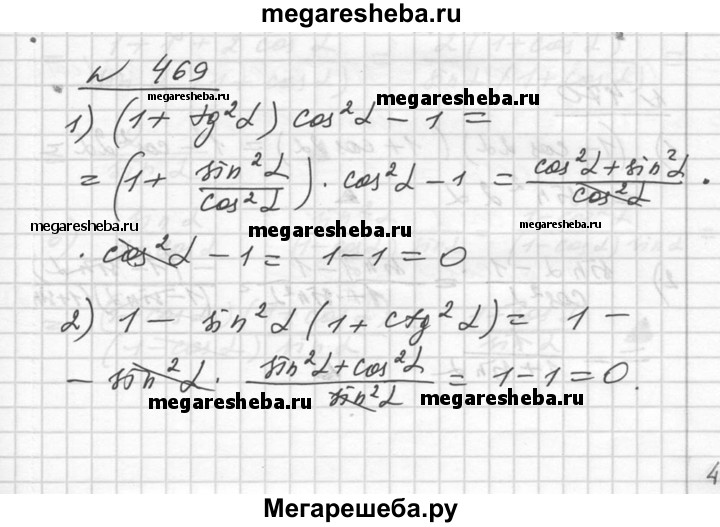 megaresheba.ru
№ 469
megaresheba.ru
megaresheba.ru
1) (1 + tg²α) cos²α − 1 =
= (1 + sin²α/cos²α) · cos²α − 1 = (cos²α + sin²α)/cos²α ·
megaresheba.ru
megaresheba.ru
megaresheba.ru
· cos²α − 1 = 1 − 1 = 0
2) 1 − sin²α (1 + ctg²α) = 1 −
− sin²α · (sin²α + cos²α)/sin²α = 1 − 1 = 0.
megaresheba.ru
megaresheba.ru
4
Мегарешеба.ру